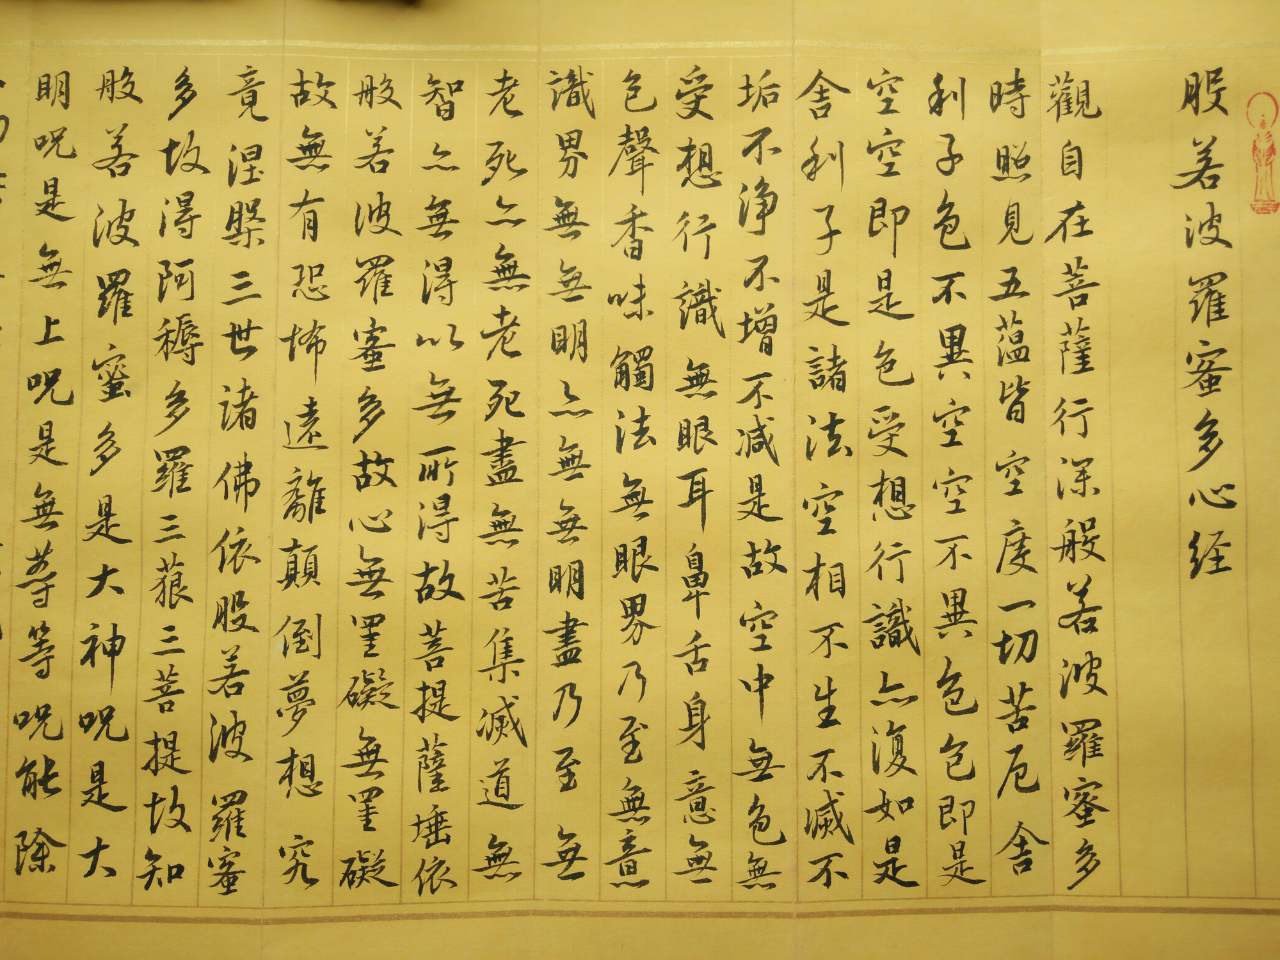 般若波羅蜜多心経
觀自在菩薩行深般若波羅蜜多
時照見五蕴皆空度一切苦厄舍
利子色不異空空不異色色即是
空空即是色受想行識亦復如是
舍利子是諸法空相不生不滅不
垢不淨不增不減是故空中無色無
受想行識無眼耳鼻舌身意無
色聲香味觸法無眼界乃至無意
識界無無明亦無無明盡乃至無
老死亦無老死盡無苦集滅道無
智亦無得以無所得故菩提薩埵依
般若波羅蜜多故心無罣礙無罣礙
故無有恐怖遠離顛倒夢想究
竟涅槃三世諸佛依般若波羅蜜
多故得阿耨多羅三藐三菩提故知
般若波羅蜜多是大神呪是大
明呪是無上呪是無等等呪能除